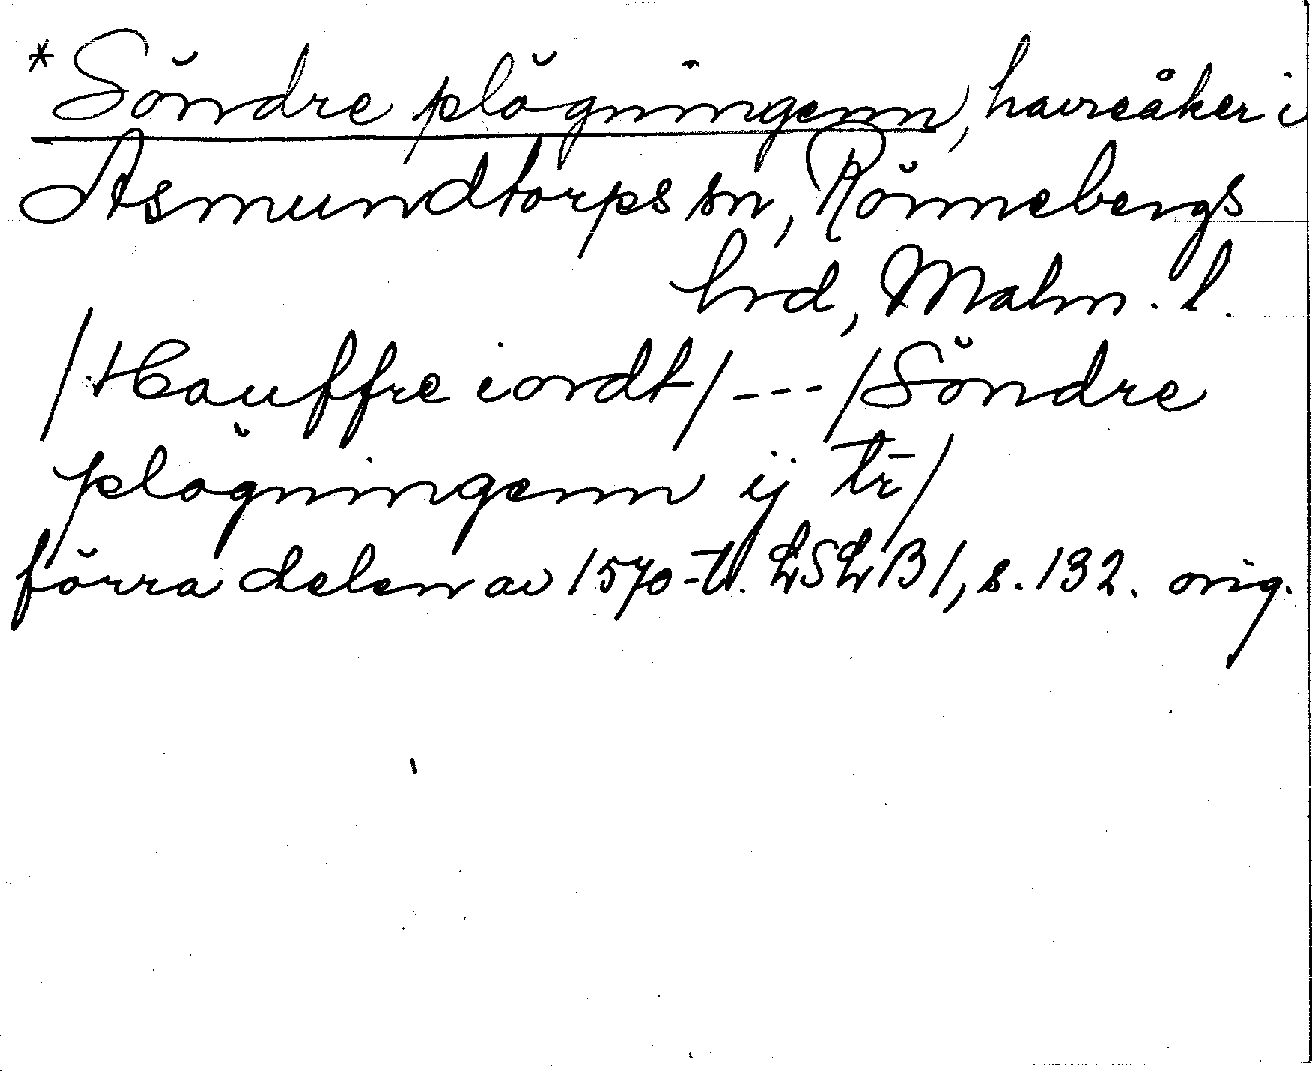 *Söndre plögningenn, havreåker i
Asmundtorps sn, Rönnebergs
hrd, Malm. l.
/Hauffre iordt/---/Söndre
plögningenn ij tr̄/
förra delen av 1570-t. LSLB1, s. 132. orig.